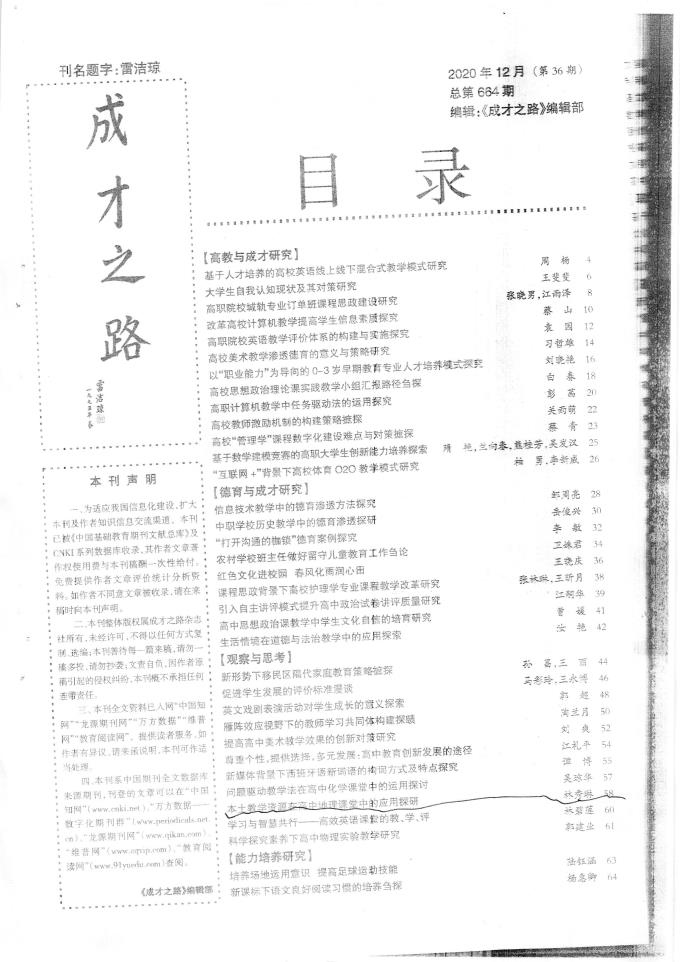 刊名题字:雷洁琼
成才之路
雷洁琼
2020年12月(第36期)
总第664期
编辑:《成才之路》编辑部
目录
本刊声明
一、为适应我国信息化建设,扩大
本刊及作者知识信息交流渠道,本刊
已被《中国基础教育期刊文献总库》及
CNKI系列数据库收录,其作者文章著
作权使用费与本刊稿酬一次性给付。
免费提供作者文章评价统计分析资
料。如作者不同意文章被收录,请在来
稿时向本刊声明。
二、本刊整体版权属成才之路杂志
社所有,未经许可,不得以任何方式复
制、选编;本刊善待每一篇来稿,请勿一
稿多投,请勿抄袭;文责自负,因作者原
稿引起的侵权纠纷,本刊概不承担任何
连带责任。
三、本刊全文资料已入网“中国知
网”“龙源期刊网”“万方数据”“维普
网”“教育阅读网”。提供读者服务,如
作者有异议,请来函说明,本刊可作适
当处理。
四、本刊系中国期刊全文数据库
来源期刊,刊登的文章可以在“中国
知网”(www.cnki.net)、“万方数据——
数字化期刊群”(www.periodicals.net
.cn)、“龙源期刊网”(www.qikan.com)、
“维普网”(www.cqvip.com)、“教育阅
读网”(www.91yuedu.com)查阅。
《成才之路》编辑部
【高教与成才研究】
基于人才培养的高校英语线上线下混合式教学模式研究 周杨 4
大学生自我认知现状及其对策研究 王斐斐 6
高职院校城轨专业订单班课程思政建设研究 张晓男,江雨泽 8
改革高校计算机教学提高学生信息素质探究 蔡山 10
高职院校英语教学评价体系的构建与实施探究 袁园 12
高校美术教学渗透德育的意义与策略研究 习哲雄 14
以“职业能力”为导向的0-3岁早期教育专业人才培养模式探究 刘晓艳 16
高校思想政治理论课实践教学小组汇报路径刍探 白春 18
高职计算机教学中任务驱动法的运用探究 彭茜 20
高校教师激励机制的构建策略摭探 关雨萌 22
高校“管理学”课程数字化建设难点与对策摭探 蔡青 23
基于数学建模竞赛的高职大学生创新能力培养探索 隋艳,兰向春,聂桂芳,吴发汉 25
“互联网+”背景下高校体育O2O教学模式研究 勇,李新威 26
【德育与成才研究】
信息技术教学中的德育渗透方法探究 郅周亮 28
中职学校历史教学中的德育渗透探研 岳俊兴 30
“打开沟通的枷锁”德育案例探究 李敏 32
农村学校班主任做好留守儿童教育工作刍论 卫姝君 34
红色文化进校园 春风化雨润心田 王晓庆 36
课程思政背景下高校护理学专业课程教学改革研究 张袜琳,王昕月 38
引入自主讲评模式提升高中政治试卷讲评质量研究 江桐华 39
高中思想政治课教学中学生文化自信的培育研究 曹媛 41
生活情境在道德与法治教学中的应用探索 汝艳 42
【观察与思考】
新形势下移民区隔代家庭教育策略摭探 孙菖,王丽 44
促进学生发展的评价标准漫谈 马彩玲,王永博 46
英文戏剧表演活动对学生成长的意义探索 郭超 48
雁阵效应视野下的教师学习共同体构建探赜 陶兰月 50
提高高中美术教学效果的创新对策研究 刘爽 52
尊重个性,提供选择,多元发展:高中教育创新发展的途径 江礼平 54
新媒体背景下西班牙语新词语的构词方式及特点探究 谭博 55
问题驱动教学法在高中化学课堂中的运用探讨 吴琼华 57
本土教学资源在高中地理课堂中的应用探研 林秀琳 58
学习与智慧共行——高效英语课堂的教、学、评 林碧莲 60
科学探究素养下高中物理实验教学研究 郭建业 61
【能力培养研究】
培养场地运用意识 提高足球运动技能 陆钰涵 63
新课标下语文良好阅读习惯的培养刍探 杨惠卿 64